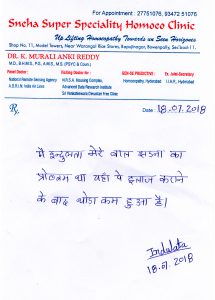 For Appointment : 27751076, 93472 51076
Sneha Super Speciality Homoeo Clinic
Up Lifting Homoeopathy Towards un Seen Horizones
Shop No. 11, Model Towers, Near Warangal Rice Stores, Bapujinagar, Bowenpally, Sec'bad-11.
DR. K. MURALI ANKI REDDY
M.D., B.H.M.S., P.G., A.M.S., M.S. (PSYC & Coun.)
Panel Doctor :
National Remote Sensing Agency
A.D.R.I.N. India Air Lines
Visiting Doctor for :
H.R.S.A. Housing Complex,
Advanced Data Research Institute
Sri Venkateswara Devasthan Free Clinic
GENESIS PREDICTIVE:
Homoeopathy, Hyderabad
Ex. Joint-Secretary
I.I.A.H., Hyderabad
Rx
Date : 18.07.2018
मैं इन्दुलता मेरे बाल झड़ना का
प्रोब्लम था यहाँ पे इलाज कराने
के बाद थोडा कम हुआ है।
Indulata
18.07.2018